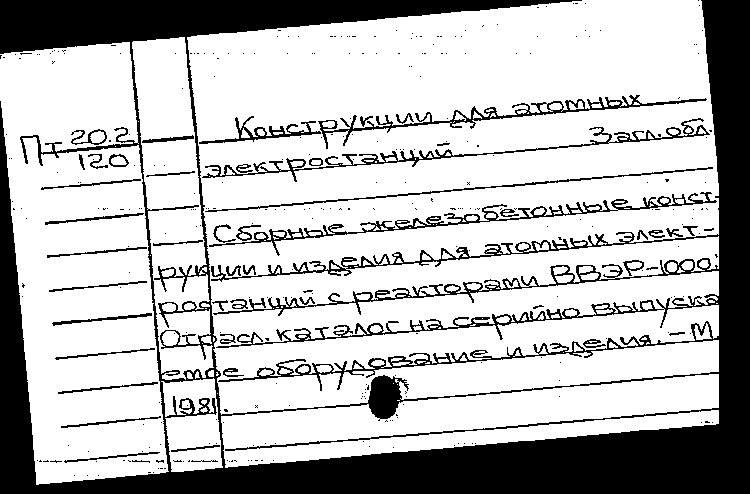 Пт 20.2
120
Конструкции для атомных
электростанций. Загл. обл.
Сборные железобетонные конст-
рукции и изделия для атомных элект-
ростанций с реакторами ВВЭР-1000:
Отрасл. каталог на серийно выпуска
емое оборудование и изделия. - М.
1981.